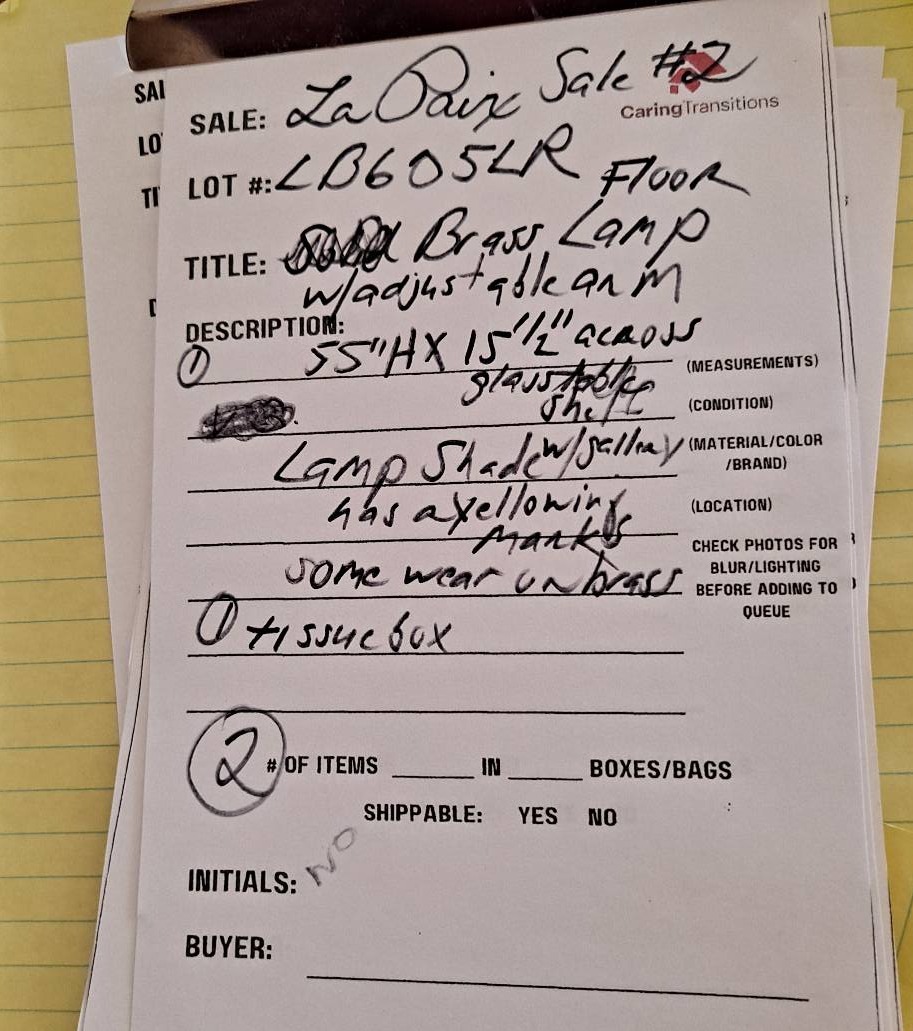 SAI
LO
TI
SALE: La Paix Sale #2
CaringTransitions
LOT #: LB605LR Floor
TITLE: Brass Lamp
w/adjustable arm
DESCRIPTION:
① 55"H X 15 1/2" across
(MEASUREMENTS)
glass table
shelf
(CONDITION)
Lamp Shade w/
(MATERIAL/COLOR
/BRAND)
has a yellowing
(LOCATION)
marks
some wear on brass
CHECK PHOTOS FOR
BLUR/LIGHTING
BEFORE ADDING TO
QUEUE
① tissue box
2 # OF ITEMS ______ IN ______ BOXES/BAGS
SHIPPABLE: YES NO
NO
INITIALS:
BUYER: